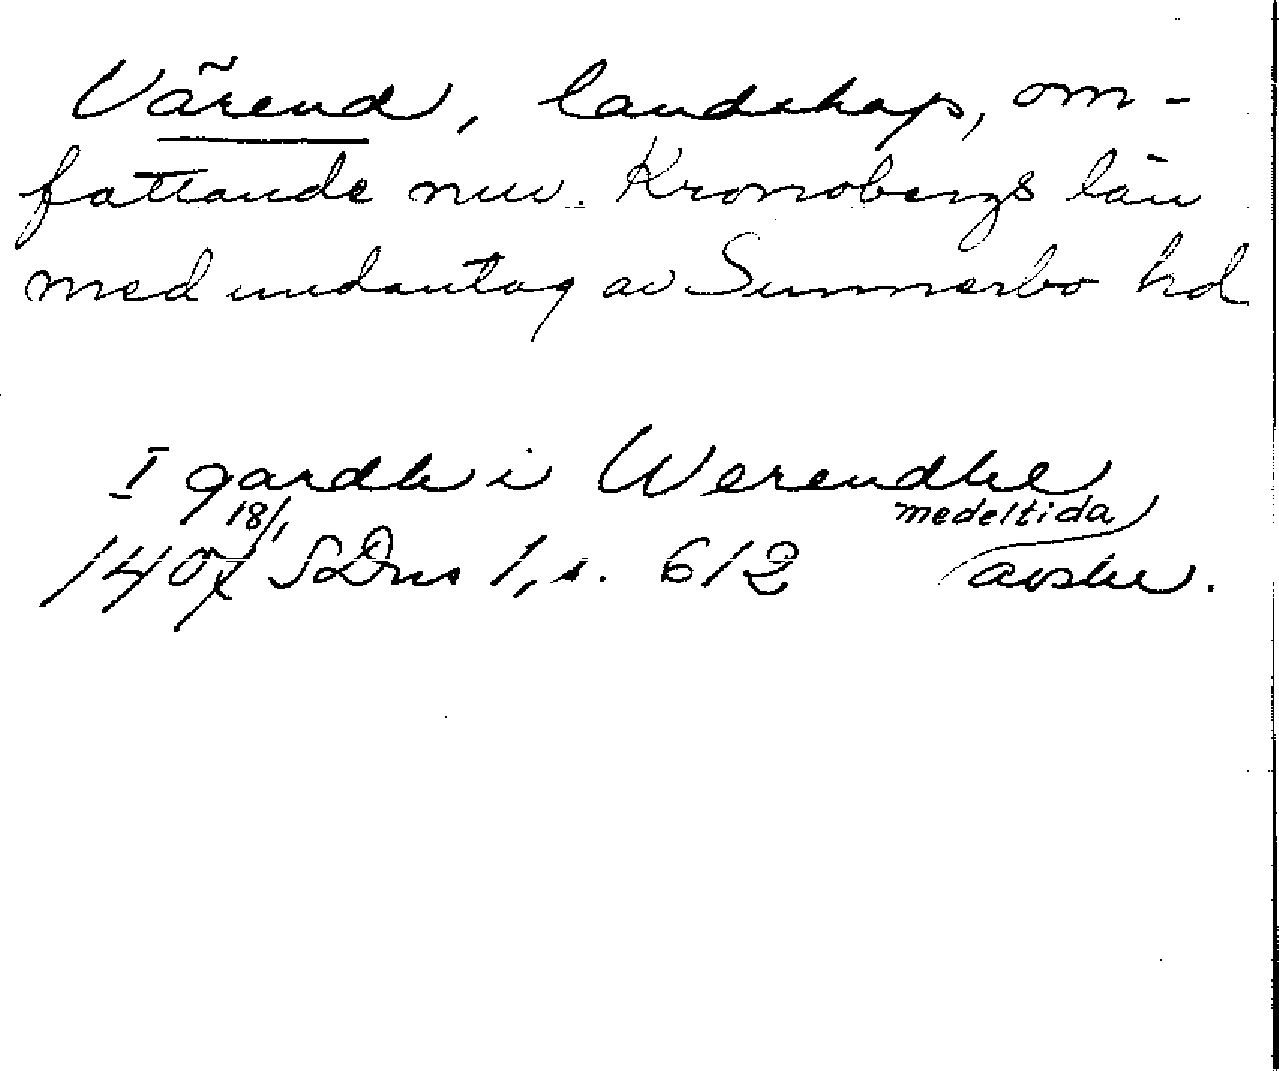 Värend, landskap, om-
fattande nuv. Kronobergs län
med undantag av Sunnerbo hd
I gardh i Werendhe
18/1
medeltida
1407 SDns 1, s. 612 avskr.